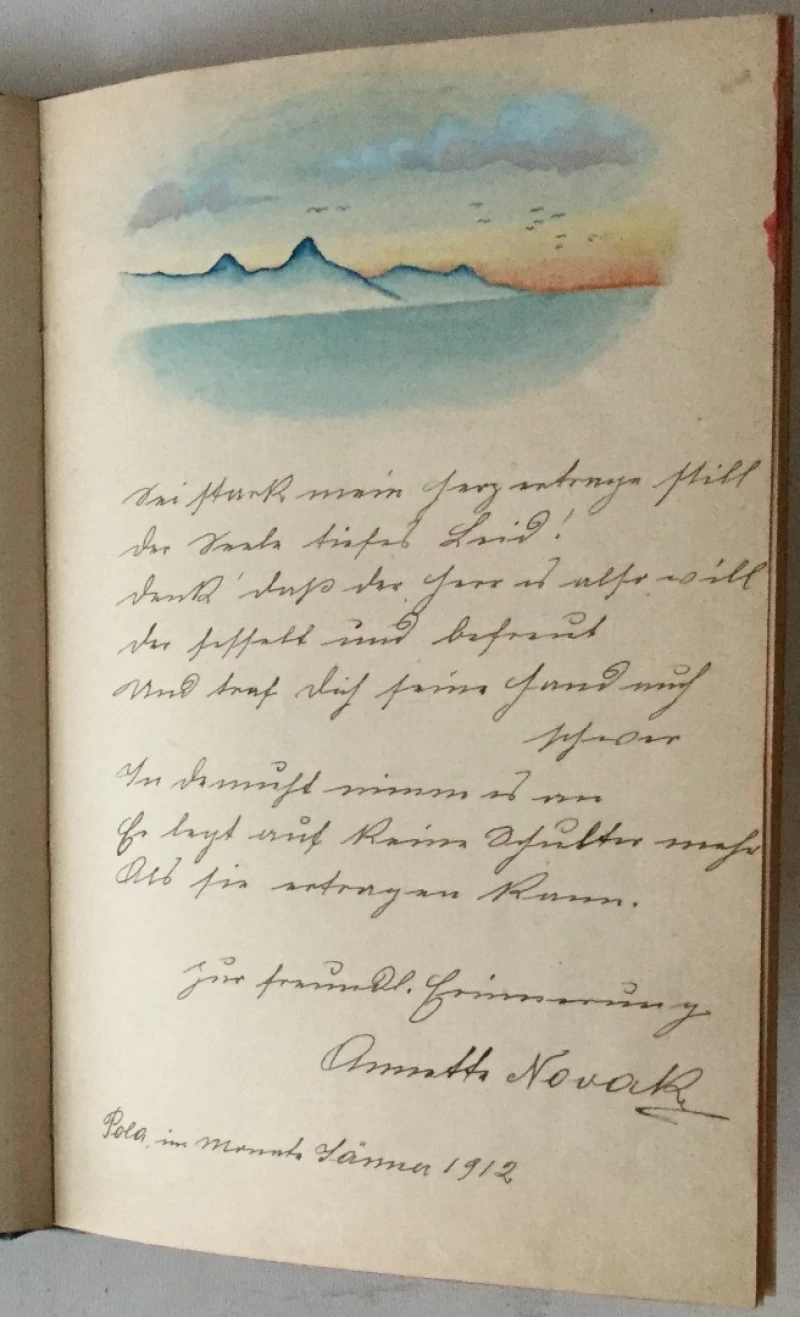 Sei stark mein Herz ertrage still
der Seele tiefes Leid!
denk' daß der Herr es also will
der fesselt und befreut
Und traf dich seine Hand auch
schwer
In demuht nimm es an
Er legt auf keine Schulter mehr
Als sie ertragen kann.
zur freundl. Erinnerung
Annette Novak
Pola, im Monate Jänner 1912